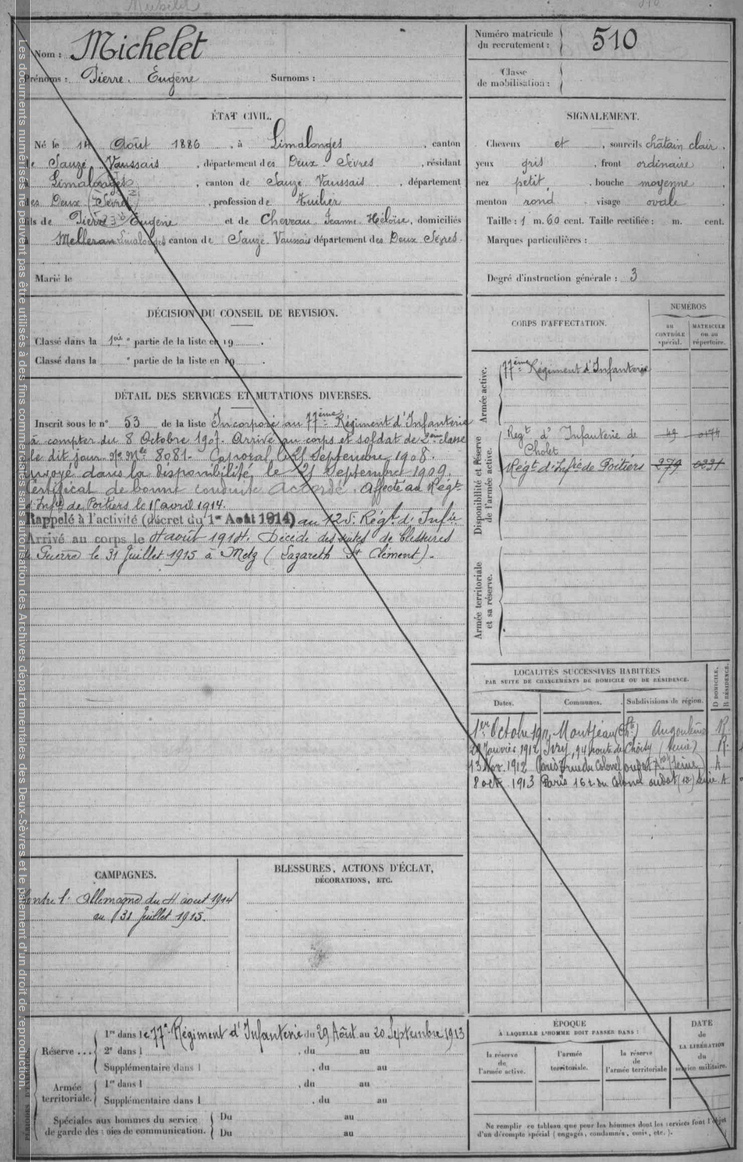 Nom : Michelet
Prénoms : Pierre Eugène Surnoms :
Numéro matricule du recrutement : 510
Classe de mobilisation :
ÉTAT CIVIL.
Né le 14 Août 1886, à Limalonges, canton
de Sauzé Vaussais, département des Deux Sèvres, résidant
Limalonges, canton de Sauzé Vaussais, département
des Deux Sèvres, profession de Tuilier
fils de Pierre Eugène et de Cheveau Jeanne Héloïse, domiciliés
Melleran canton de Sauzé Vaussais département des Deux Sèvres.
Marié le
SIGNALEMENT.
Cheveux et , sourcils châtain clair.
yeux gris , front ordinaire
nez petit , bouche moyenne
menton rond , visage ovale
Taille : 1 m. 60 cent. Taille rectifiée : m. cent.
Marques particulières :
Degré d'instruction générale : 3
DÉCISION DU CONSEIL DE REVISION.
Classé dans la 1ère partie de la liste en 19 .
Classé dans la partie de la liste en 19 .
DÉTAIL DES SERVICES ET MUTATIONS DIVERSES.
Inscrit sous le n° 53 de la liste Incorporé au 77ème Régiment d'Infanterie
à compter du 8 Octobre 1907. Arrivé au corps et soldat de 2me classe
le dit jour. No Mle 8081. Caporal le 21 Septembre 1908.
Envoyé dans la disponibilité le 21 Septembre 1909.
Certificat de bonne conduite Accordé. Affecté au Régt
d'Infie de Poitiers le 1er avril 1914.
Rappelé à l'activité (décret du 1er Août 1914) au 125e Régt d'Infie
Arrivé au corps le 4 août 1914. Décédé des suites de blessures
de Guerre le 31 Juillet 1915 à Metz (Lazareth St Clément).
CORPS D'AFFECTATION.
NUMÉROS
AU CONTRÔLE spécial.
MATRICULE OU AU répertoire.
Armée active.
77ème Régiment d'Infanterie
Disponibilité et Réserve de l'armée active.
Regt d'Infanterie de Cholet
Régt d'Infie de Poitiers 379 0231
Armée territoriale et sa réserve.
LOCALITÉS SUCCESSIVES HABITÉES
PAR SUITE DE CHANGEMENTS DE DOMICILE OU DE RÉSIDENCE.
Dates. Communes. Subdivisions de région. D DOMICILE. R RÉSIDENCE.
Montjean Angoulême R
Janvier 1912 Ivry, 94 route de Choisy (Seine) R
13 Nov. 1912 Paris
8 octr. 1913 Paris 16
CAMPAGNES.
Contre l'Allemagne du 4 août 1914
au 31 Juillet 1915.
BLESSURES, ACTIONS D'ÉCLAT,
DÉCORATIONS, ETC.
Réserve ... 1re dans le 77e Régiment d'Infanterie du 29 Août au 20 Septembre 1913
2e dans l , du au
Supplémentaire dans l , du au
Armée territoriale. 1re dans l , du au
Supplémentaire dans l , du au
Spéciales aux hommes du service de garde des voies de communication. Du au
Du au
ÉPOQUE
À LAQUELLE L'HOMME DOIT PASSER DANS :
la réserve de l'armée active. l'armée territoriale. la réserve de l'armée territoriale
DATE de LA LIBÉRATION du service militaire.
Ne remplir ce tableau que pour les hommes dont les services font l'objet
d'un décompte spécial (engagés, condamnés, omis, etc.).
Les documents numérisés ne peuvent pas être utilisés à des fins commerciales sans autorisation des Archives départementales des Deux-Sèvres et le paiement d'un droit de reproduction.